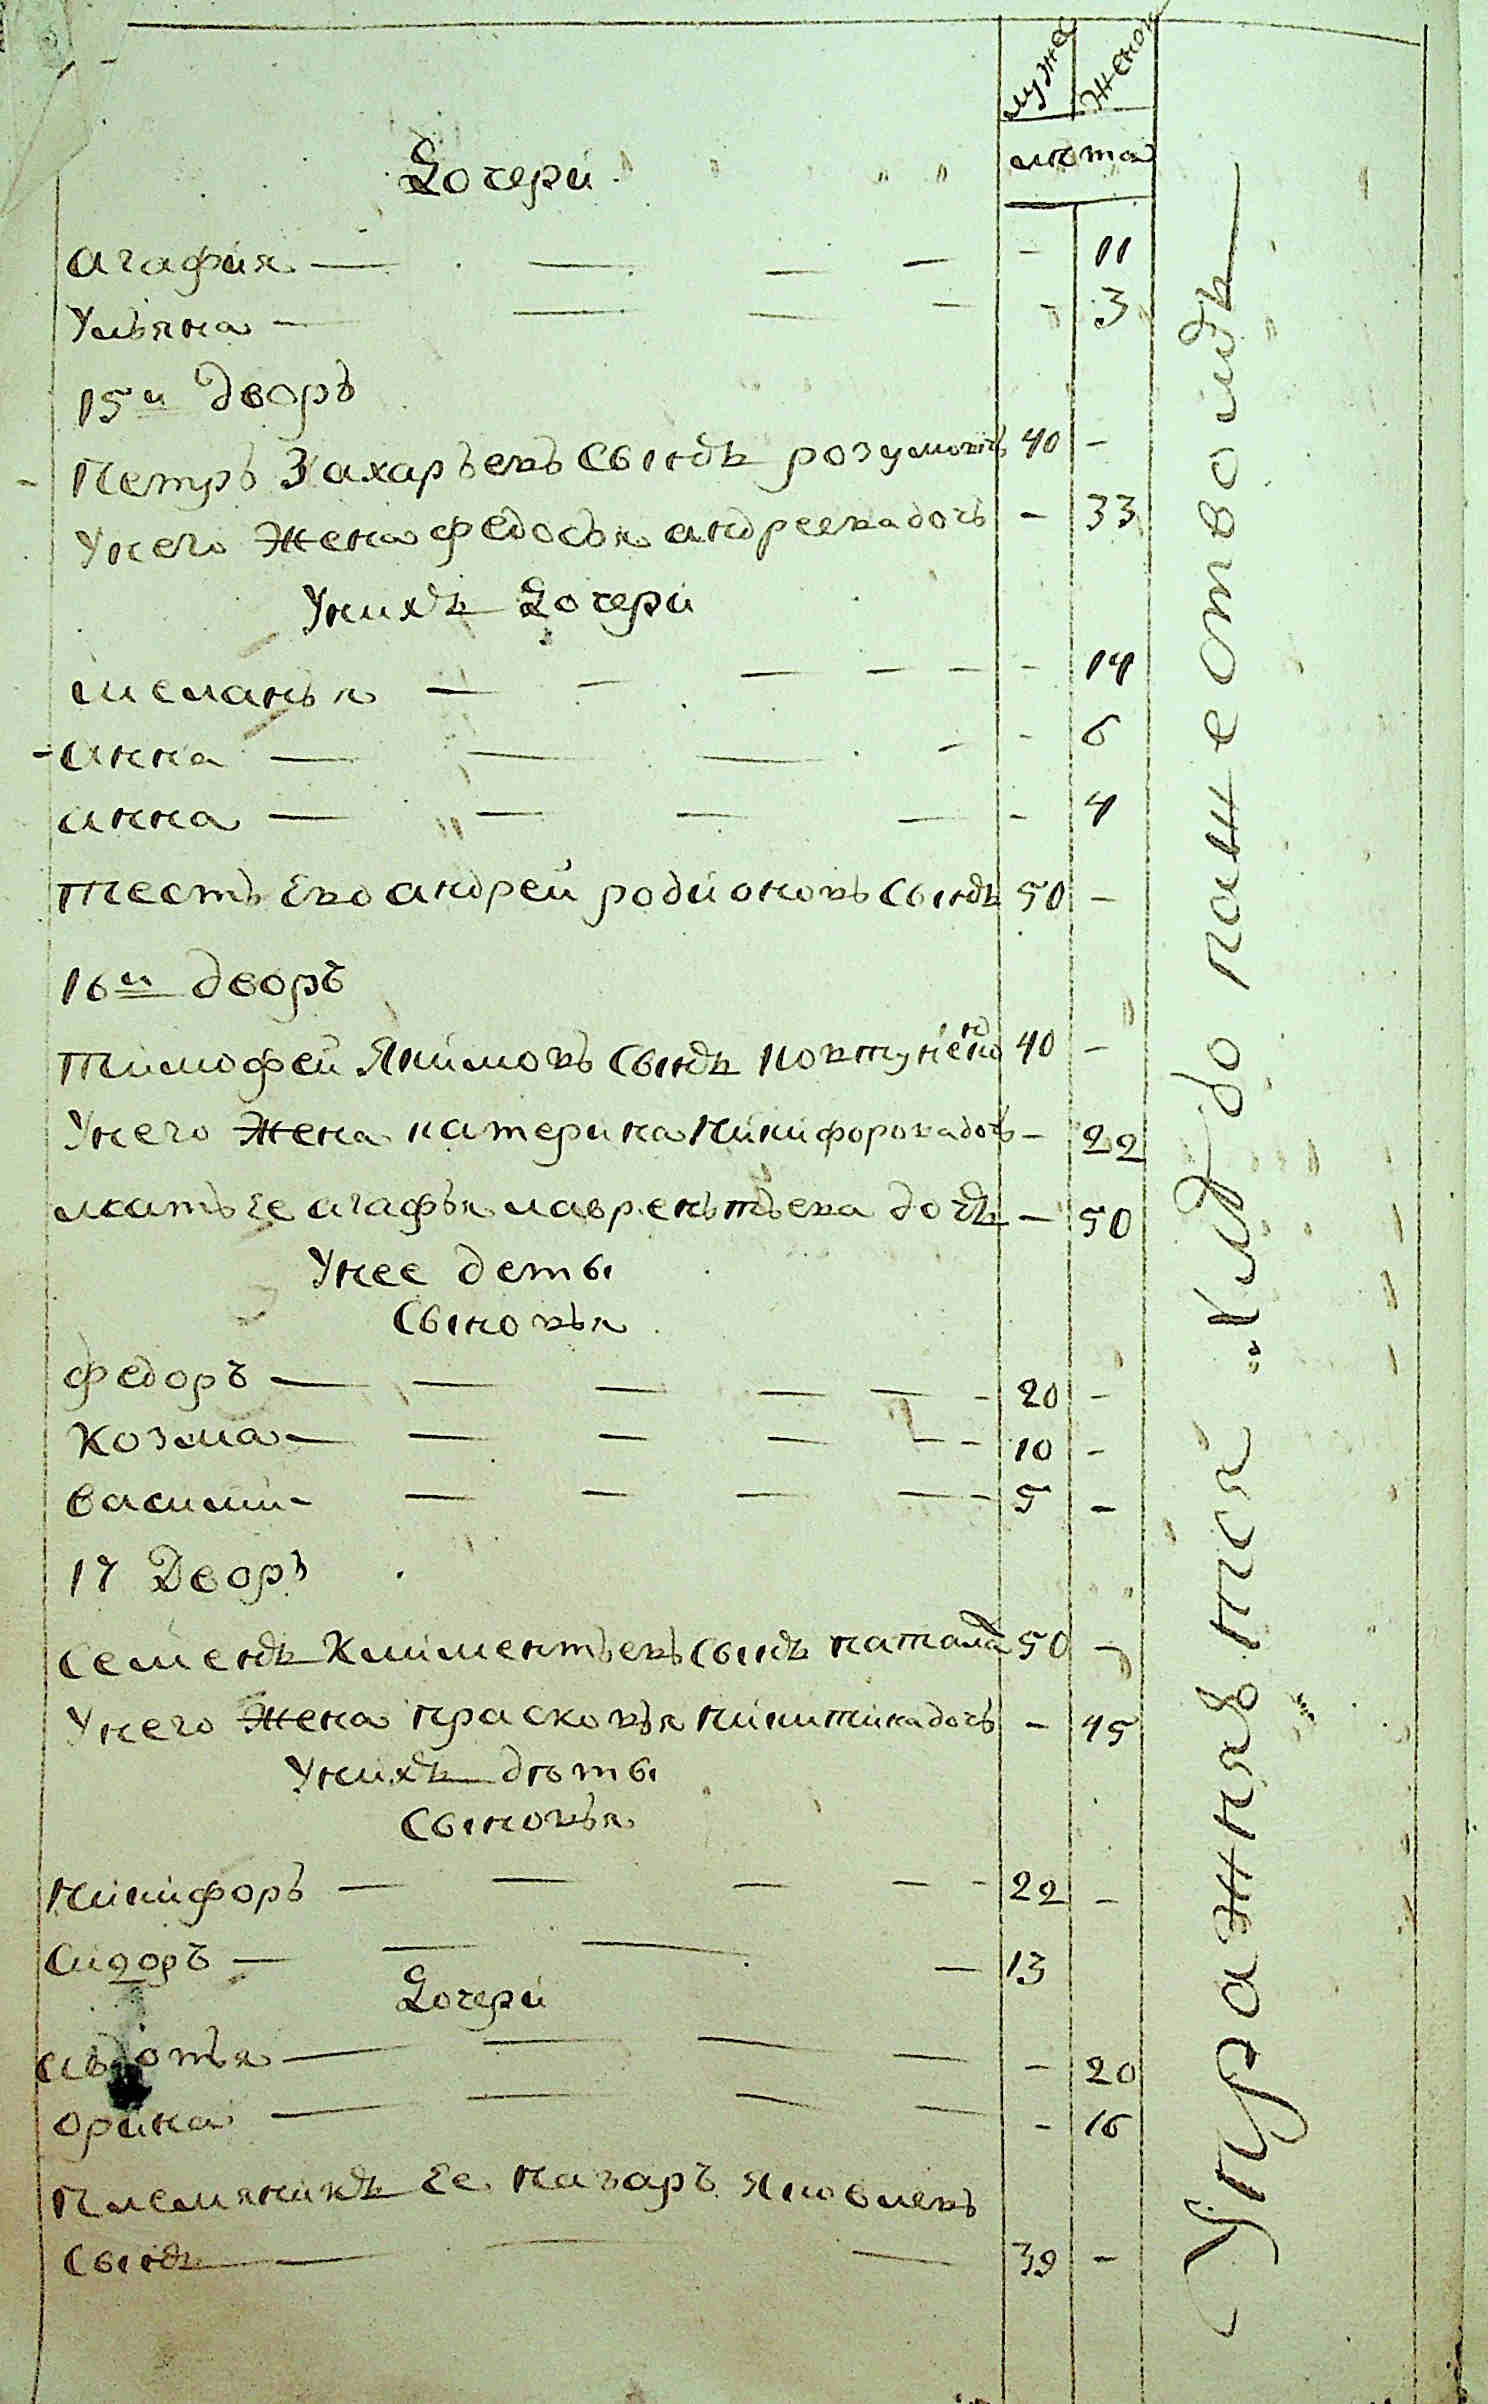 муже женск
лѣта
Дочери
агафия — — — — - 11
Ульяна — — — — - 3
15й дворъ
Петръ Захарьевъ сынъ розумовъ 40 -
У него жена федосья андреева дочь - 33
У нихъ Дочери
меланья — — — — - 14
анна — — — — - 6
анна — — — — - 4
тесть ево андрей родионовъ сынъ 50 -
16й дворъ
тимофей Якимовъ сынъ 40 -
У него жена катерина никифорова дочь - 22
мать ее агафья лаврентьева дочь - 50
У нее деты
Сыновья
федоръ — — — — — - 20 -
Козма — — — — - 10 -
василий — — — — — 5 -
17 Дворъ
Семенъ Климентьевъ сынъ 50 -
У него жена прасковья никитина дочь - 45
У нихъ дѣты
Сыновья
никифоръ — — — — - 22 -
Сидоръ — — — — 13
Дочери
авдотья — — — — - 20
орина — — — — - 16
Племяникъ ее назаръ яковлевъ
Сынъ — — — 39 -
Упражнявтся кд до пашеотвоидъ